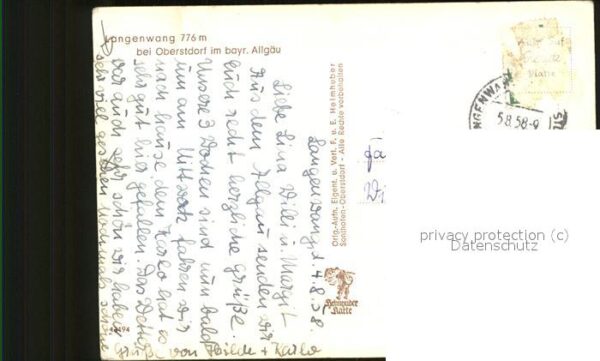 Langenwang 776 m
bei Oberstdorf im bayr. Allgäu
Langenwang d. 4.8.58
Liebe Lina Willi u. Margit
Aus dem Allgäu senden wir
Euch recht herzliche Grüße.
Unsere 3 Wochen sind nun bald
um am Mittwoch fahren wir
nach hause den Karlo hat es
sehr gut hier gefallen. Das
war auch sehr schön wir haben
sehr viel gesehen nochmals schöne
Grüße von Hilde + Karlo
Orig.-Aufn. Eigent. u. Verl. F. u. E. Heimhuber
Sonthofen-Oberstdorf - Alle Rechte vorbehalten
Heimhuber
Karte
5.8.58-9
privacy protection (c)
Datenschutz